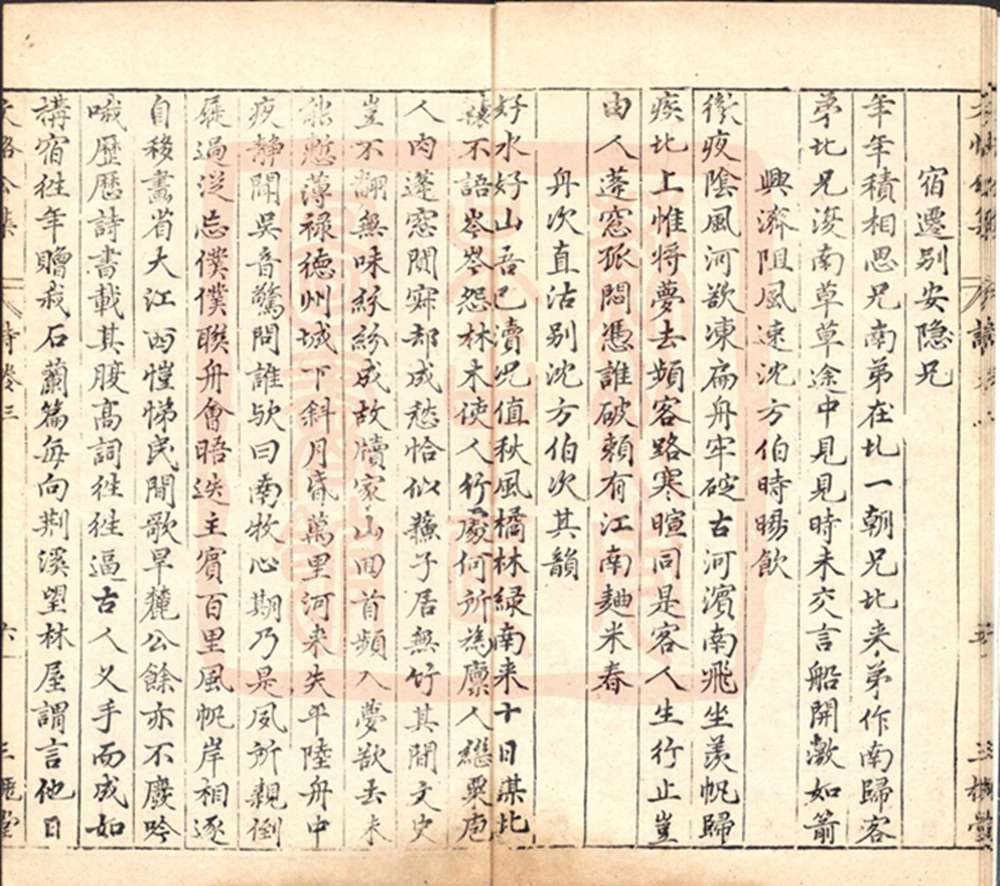 宿遷別安隐兄
年年積相思兄南弟在北一朝兄北来弟作南歸客
弟北兄復南草草途中見見時未交言船開激如箭
興濟阻風速沈方伯時暘飲
徹夜陰風河欲凍扁舟牢碇古河濱南飛坐羡帆歸
疾北上惟将夢去頻客路寒暄同是客人生行止豈
由人蓬窓孤悶憑誰破頼有江南麯米春
舟次直沽別沈方伯次其韻
好水好山吾已瀆况值秋風橘林緑南来十日謀北
轅不語岑岑怨林木使人行處何所為廪人繼粟庖
人肉蓬窓閴寂却成愁恰似蘓子居無竹其間文史
豈不翻無味紛紛成故牘家山回首頻入夢欲去未
能慙薄禄德州城下斜月昏萬里河来失平陸舟中
夜靜聞吳音驚問誰欤曰南牧心期乃是夙所親倒
屣過从忘僕僕聯舟會晤迭主賓百里風帆岸相逐
自移畫省大江西愷悌民間歌旱麓公餘亦不廢吟
哦歷歷詩書載其腹高詞徃徃逼古人乂手而成如
講宿徃年贈我石蘭篇每向荆溪望林屋謂言他日
詩卷三
六